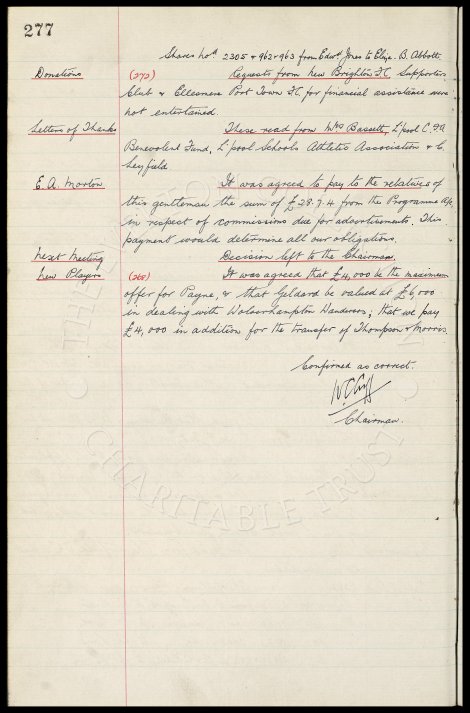 277
Shares Nos 2305 & 962 & 963 from Edwd Jones to Eliza. B. Abbott.
Donations (272) Requests from New Brighton F.C. Supporters
Club & Ellesmere Port Town F.C. for financial assistance were
not entertained.
Letters of Thanks These read from Mrs Bassett, L'pool C. F.A.
Benevolent Fund, L'pool Schools Athletic Association & C.
Leyfield
E. A. Morton It was agreed to pay to the relatives of
this gentleman the sum of £28.7.4 from the Programme A/c
in respect of commissions due for advertisements. This
payment would determine all our obligations.
Next Meeting Decision left to the Chairman.
New Players (268) It was agreed that £4,000 be the maximum
offer for Payne, & that Geldard be valued at £6,000
in dealing with Wolverhampton Wanderers; that we pay
£4,000 in addition for the transfer of Thompson & Morris
Confirmed as correct.
W. C. Cuff
Chairman.
THE
CHARITABLE TRUST